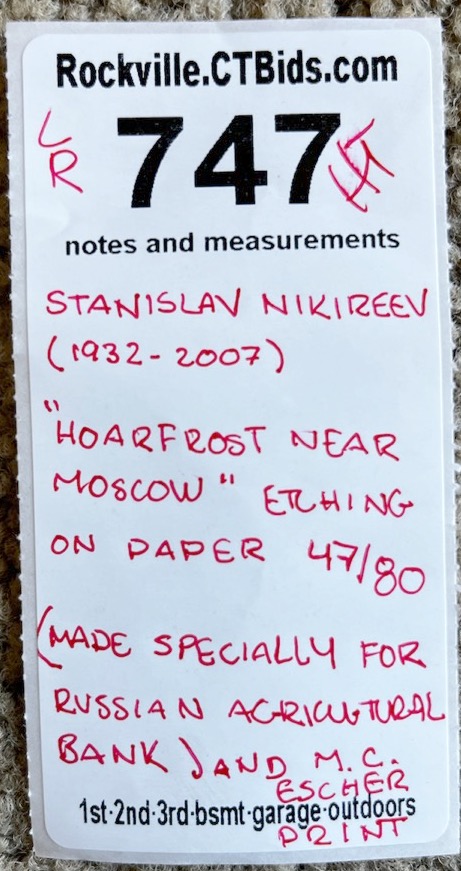 Rockville.CTBids.com
LR 747 HT
notes and measurements
STANISLAV NIKIREEV
(1932-2007)
"HOARFROST NEAR
MOSCOW" ETCHING
ON PAPER 47/80
(MADE SPECIALLY FOR
RUSSIAN AGRICULTURAL
BANK) AND M.C.
ESCHER
1st·2nd·3rd·bsmt·garage·outdoors
PRINT